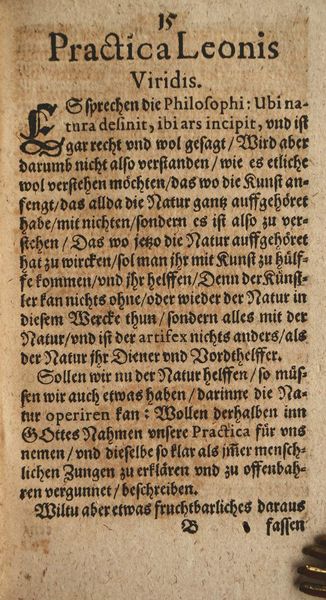 15
Practica Leonis
Viridis.
ES sprechen die Philosophi: Ubi na-
tura desinit, ibi ars incipit, vnd ist
gar recht vnd wol gesagt / Wird aber
darumb nicht also verstanden / wie es etliche
wol verstehen möchten / das wo die Kunst an-
fengt / das allda die Natur gantz auffgehöret
habe / mit nichten / sondern es ist also zu ver-
stehen / Das wo jetzo die Natur auffgehöret
hat zu wircken / sol man jhr mit Kunst zu hülf-
fe kommen / vnd jhr helffen / Denn der Künst-
ler kan nichts ohne / oder wieder der Natur in
diesem Wercke thun / sondern alles mit der
Natur / vnd ist der artifex nichts anders / als
der Natur jhr Diener vnd Vordthelffer.
Sollen wir nu der Natur helffen / so müs-
sen wir auch etwas haben / darinne die Na-
tur operiren kan: Wollen derhalben inn
GOttes Nahmen vnsere Practica für vns
nemen / vnd dieselbe so klar als jm̅er mensch-
lichen Zungen zu erklären vnd zu offenbah-
ren vergunnet / beschreiben.
Wiltu aber etwas fruchtbarliches daraus
B fassen